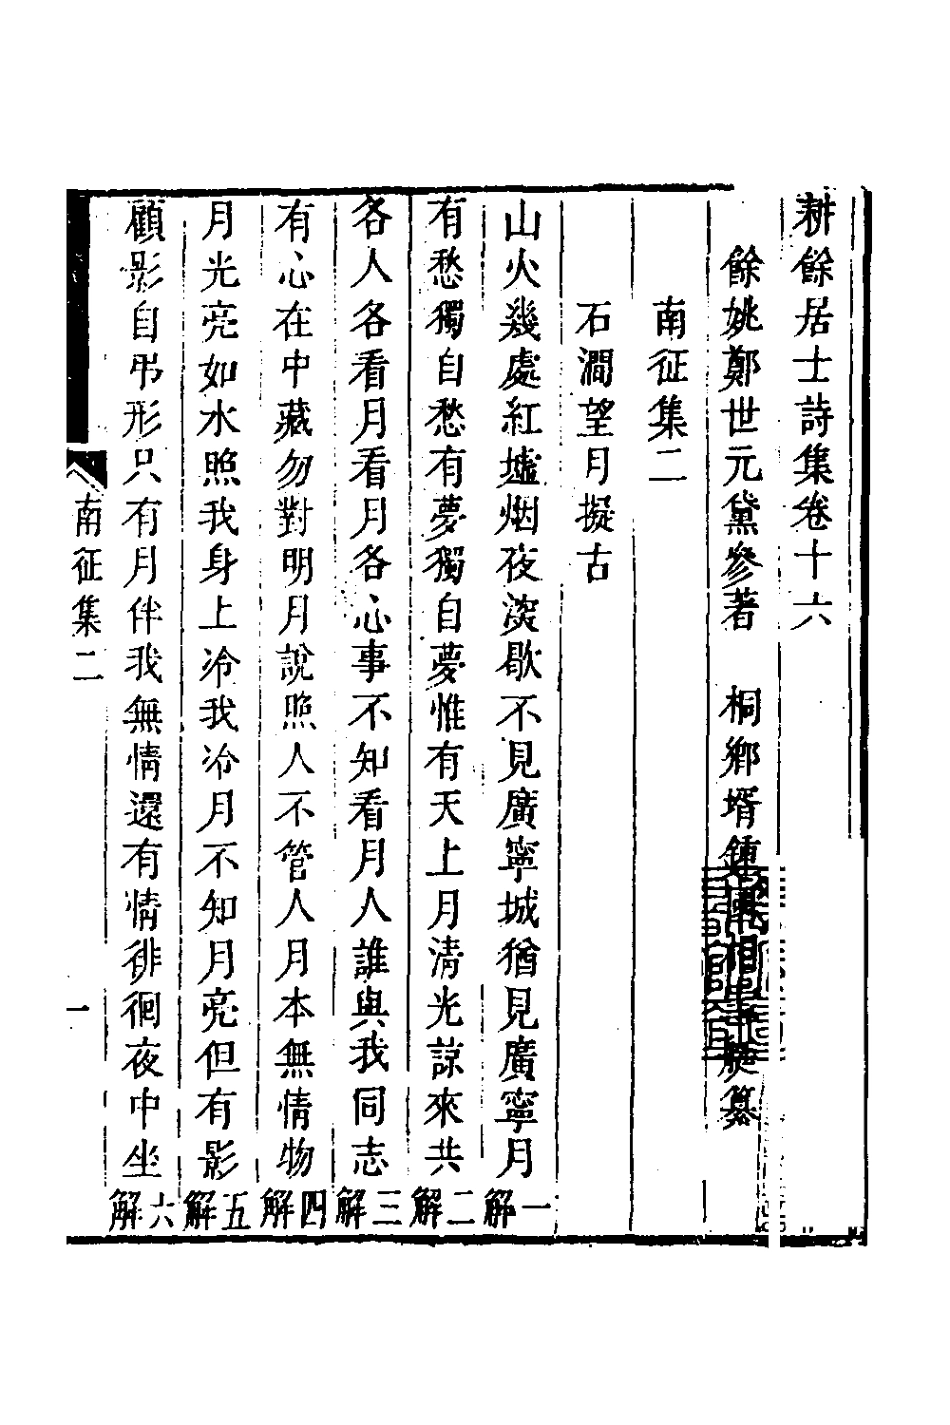 耕餘居士詩集卷十六
餘姚鄭世元黛參著　桐鄉壻鍾
纂
南征集二
石澗望月擬古
山火幾處紅墟烟夜淡歇不見廣寧城猶見廣寧月一解
有愁獨自愁有夢獨自夢惟有天上月清光諒來共二解
各人各看月看月各心事不知看月人誰與我同志三解
有心在中藏勿對明月說照人不管人月本無情物四解
月光亮如水照我身上冷我冷月不知月亮但有影五解
顧影自弔形只有月伴我無情還有情徘徊夜中坐六解
南征集二
一